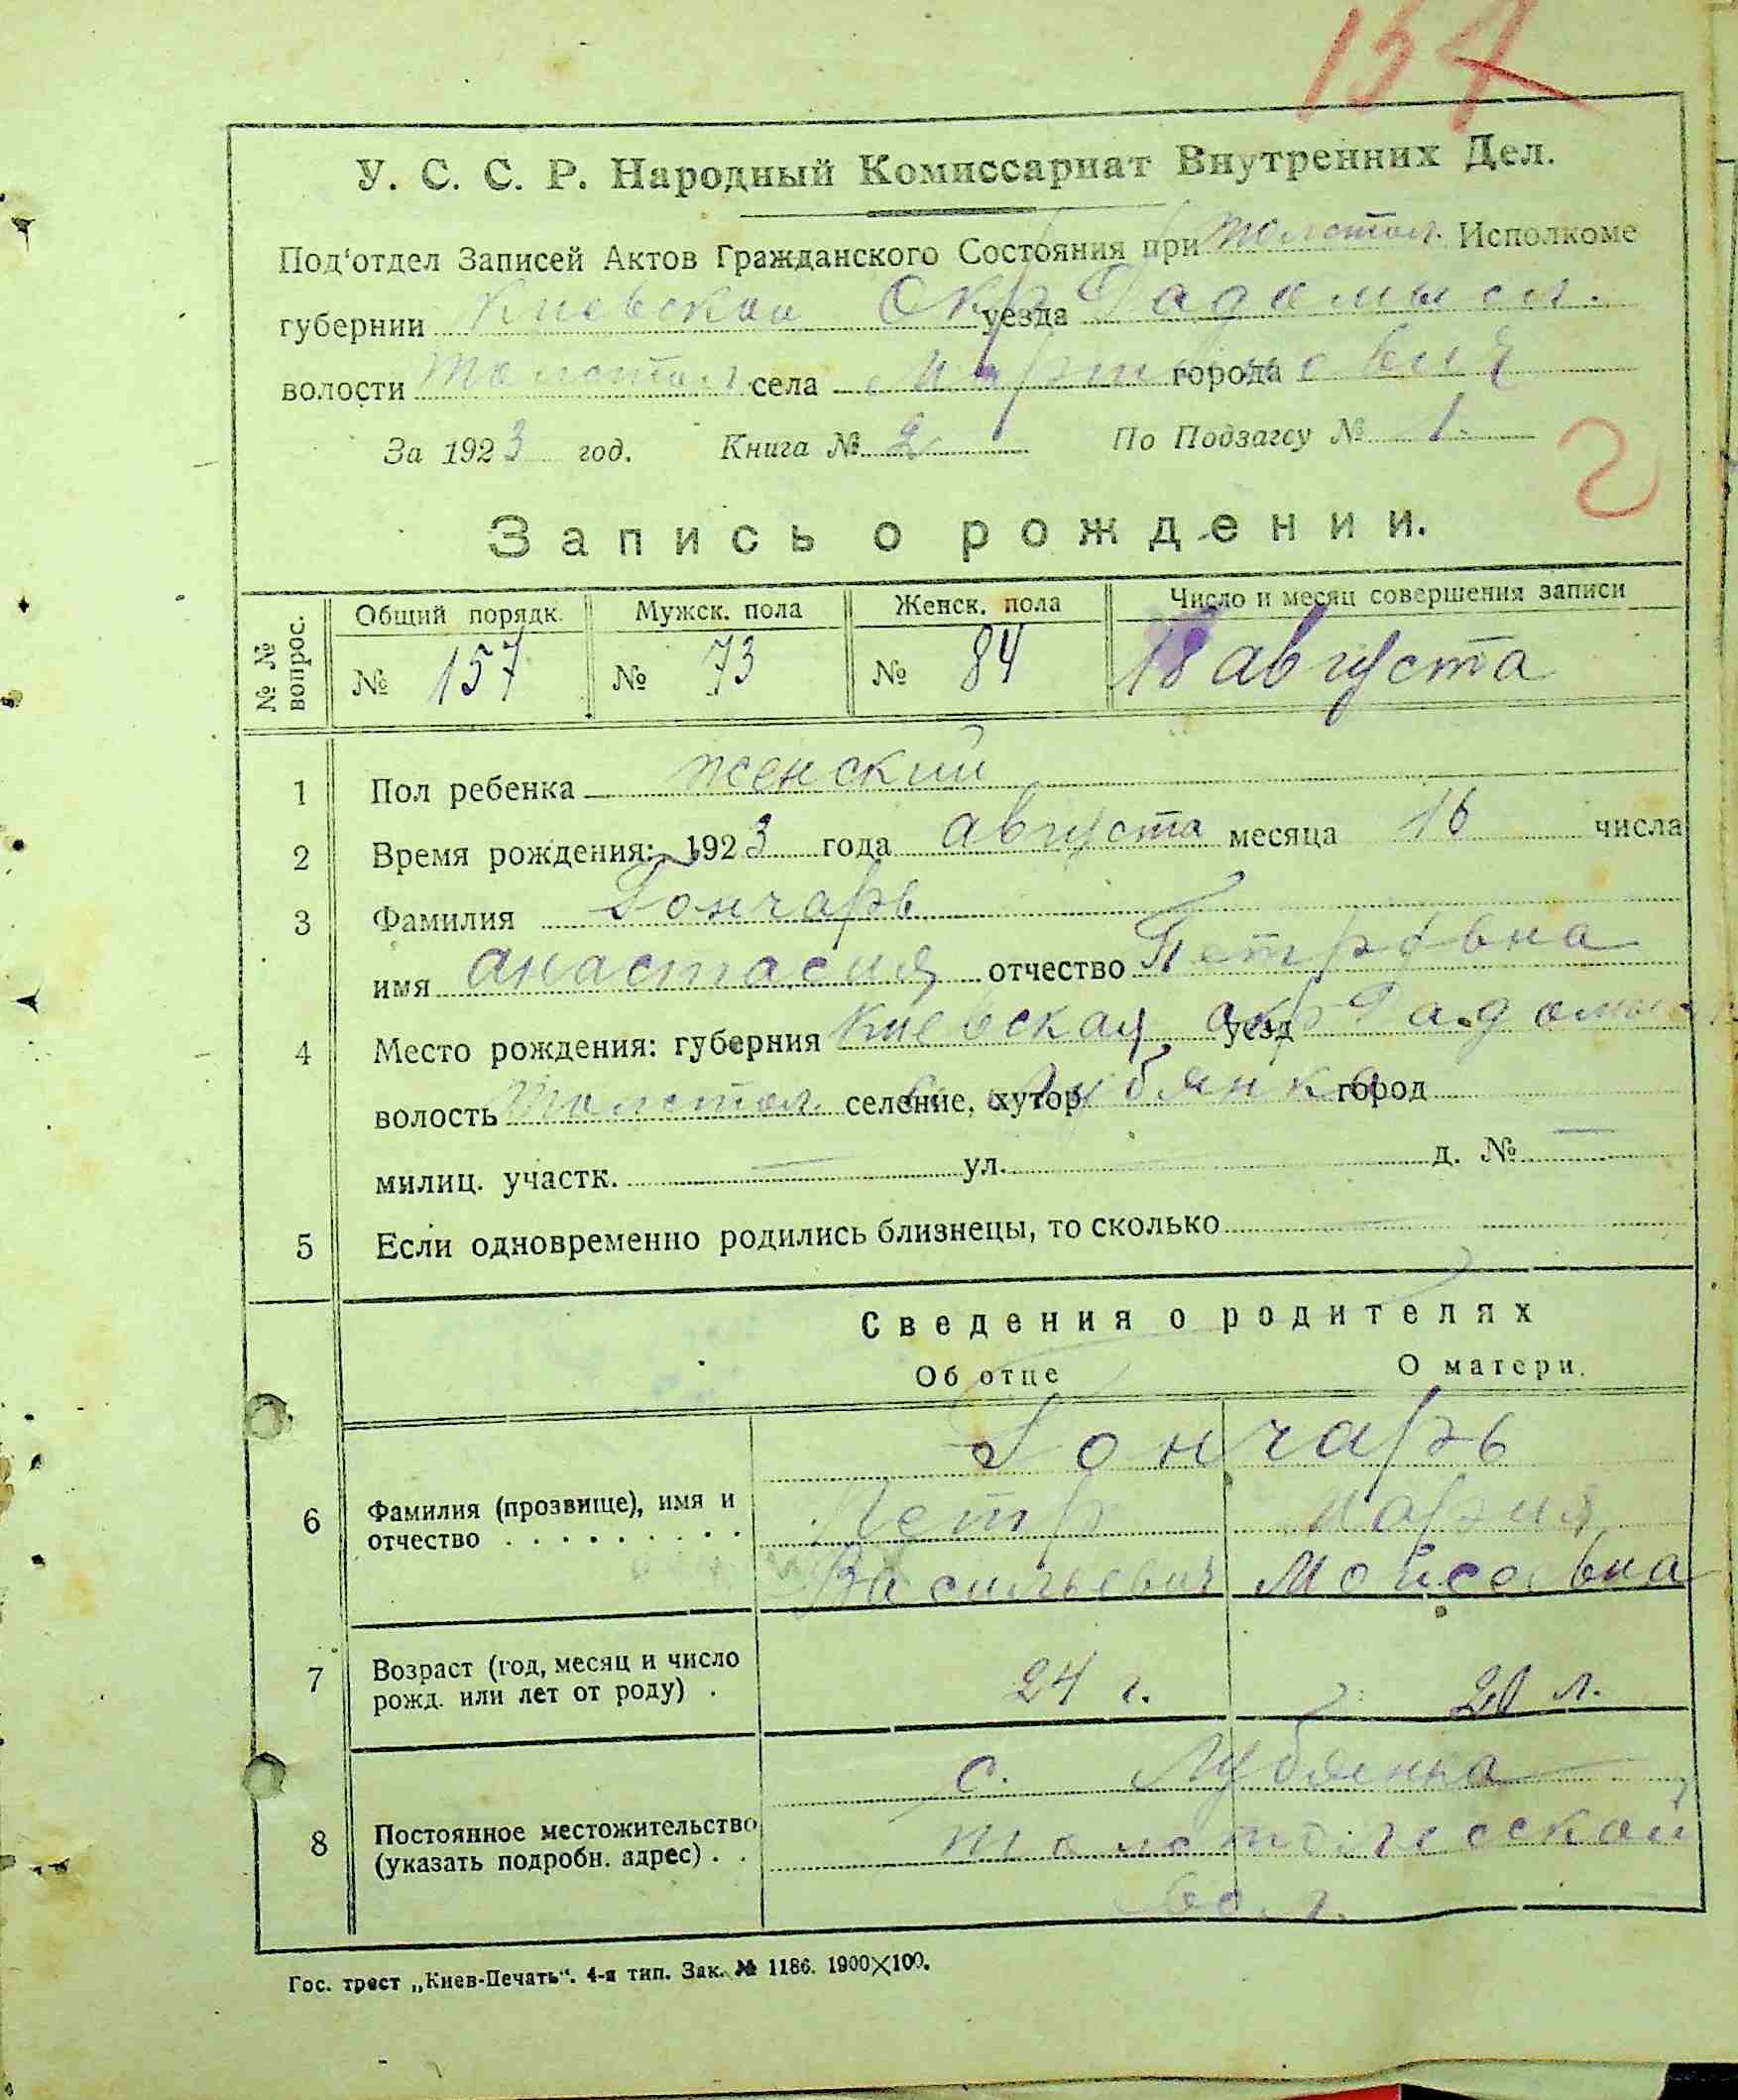 У. С. С. Р. Народный Комиссариат Внутренних Дел.
Под'отдел Записей Актов Гражданского Состояния при Толстол. Исполкоме
губернии Киевской Окр. уезда Радомысл.
волости Толстол. села Мартыновичи города
За 1923 год. Книга № 2 По Подзагсу № 1.
2
Запись о рождении.
№ № вопрос.
Общий порядк. Мужск. пола Женск. пола Число и месяц совершения записи
№ 157 № 73 № 84 18 августа
1 Пол ребенка женский
2 Время рождения: 1923 года августа месяца 16 числа
3 Фамилия Гончарь
имя Анастасия отчество Петровна
4 Место рождения: губерния Киевская окр уезд Радомысл
волость Толстол. селение, хутор Лубянка город
милиц. участк. — ул. — д. № —
5 Если одновременно родились близнецы, то сколько —
Сведения о родителях
Об отце О матери.
Гончарь
6 Фамилия (прозвище), имя и отчество Петр Мария
Васильевич Мойсеевна
7 Возраст (год, месяц и число рожд. или лет от роду) 24 г. 20 л.
с. Лубянка
8 Постоянное местожительство (указать подробн. адрес) Толстолесской
вол.
Гос. трест „Киев-Печать“. 4-я тип. Зак. № 1186. 1900×100.